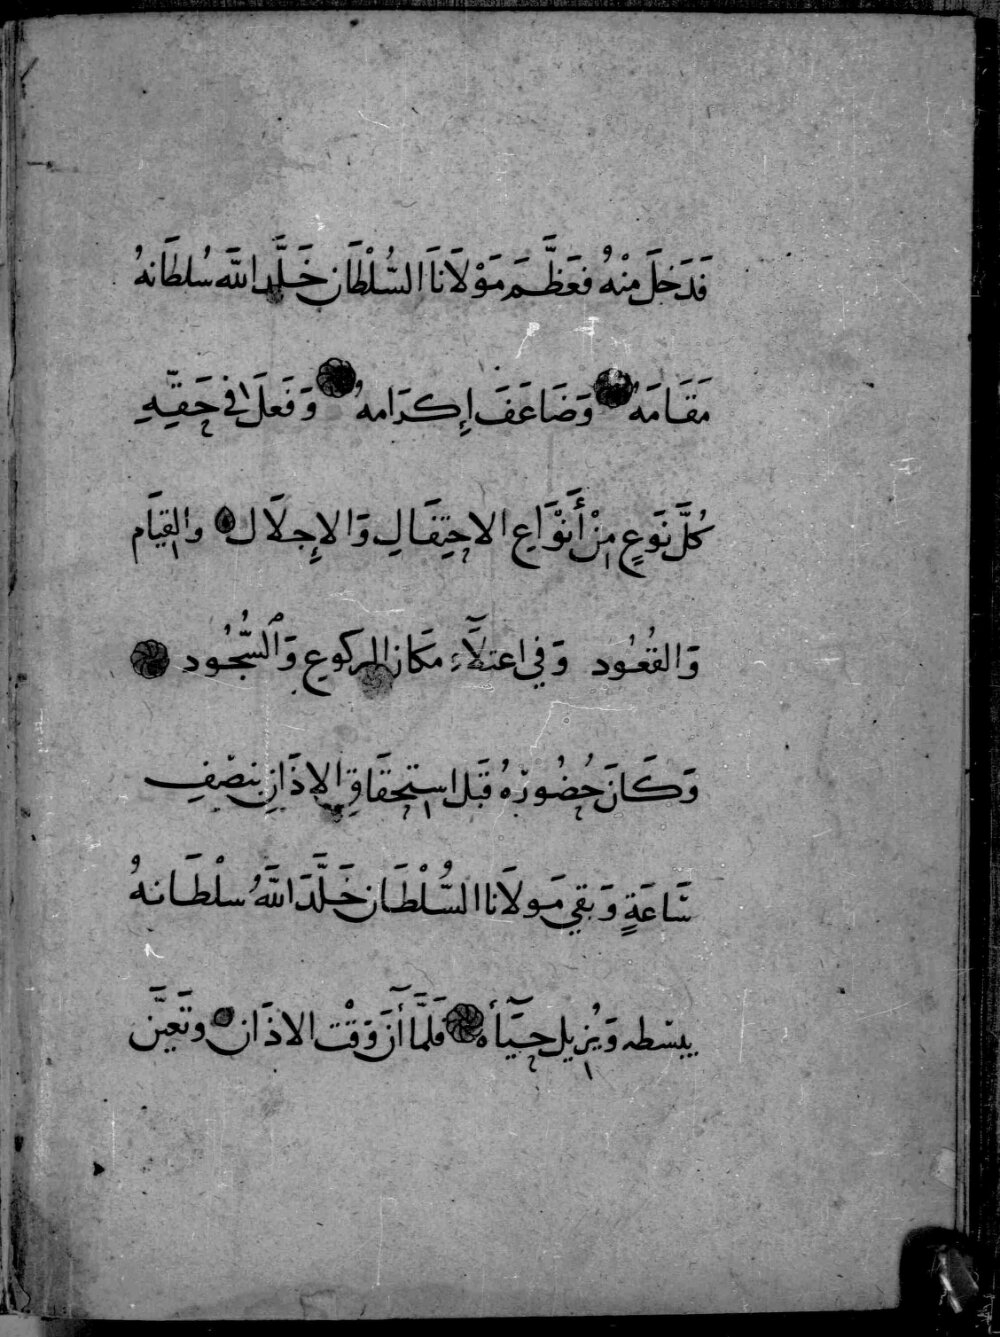 قَدَخَلَ مِنْهُ فعَظَّمَ مَوْلَانَا السُّلْطَان خَلَّد اللَّه سُلطَانهُ
مَقَامَهُ وَضَاعَفَ إِكرَامهُ وَفَعلَ في حَقِّهِ
كُلَّ نَوعٍ مِنْ أَنوَاعِ الاحتِفَالِ وَالإِجلَال والقِيَام
وَالقُعُود وَفي اعتلَآء مكَان الركوعِ وَالسُّجُود
وَكَانَ حُضُورُهُ قَبَل استحقَاقِ الاذَانِ بنصْفِ
سَاعَةٍ وَبقي مَولَانا السُّلْطَان خَلَّدَ اللَّهُ سلْطَانهُ
يبسْطه وَيُزيل حيَآأه فَلَمَّا آنَ وَقْت الاذَان وتَعيَّن